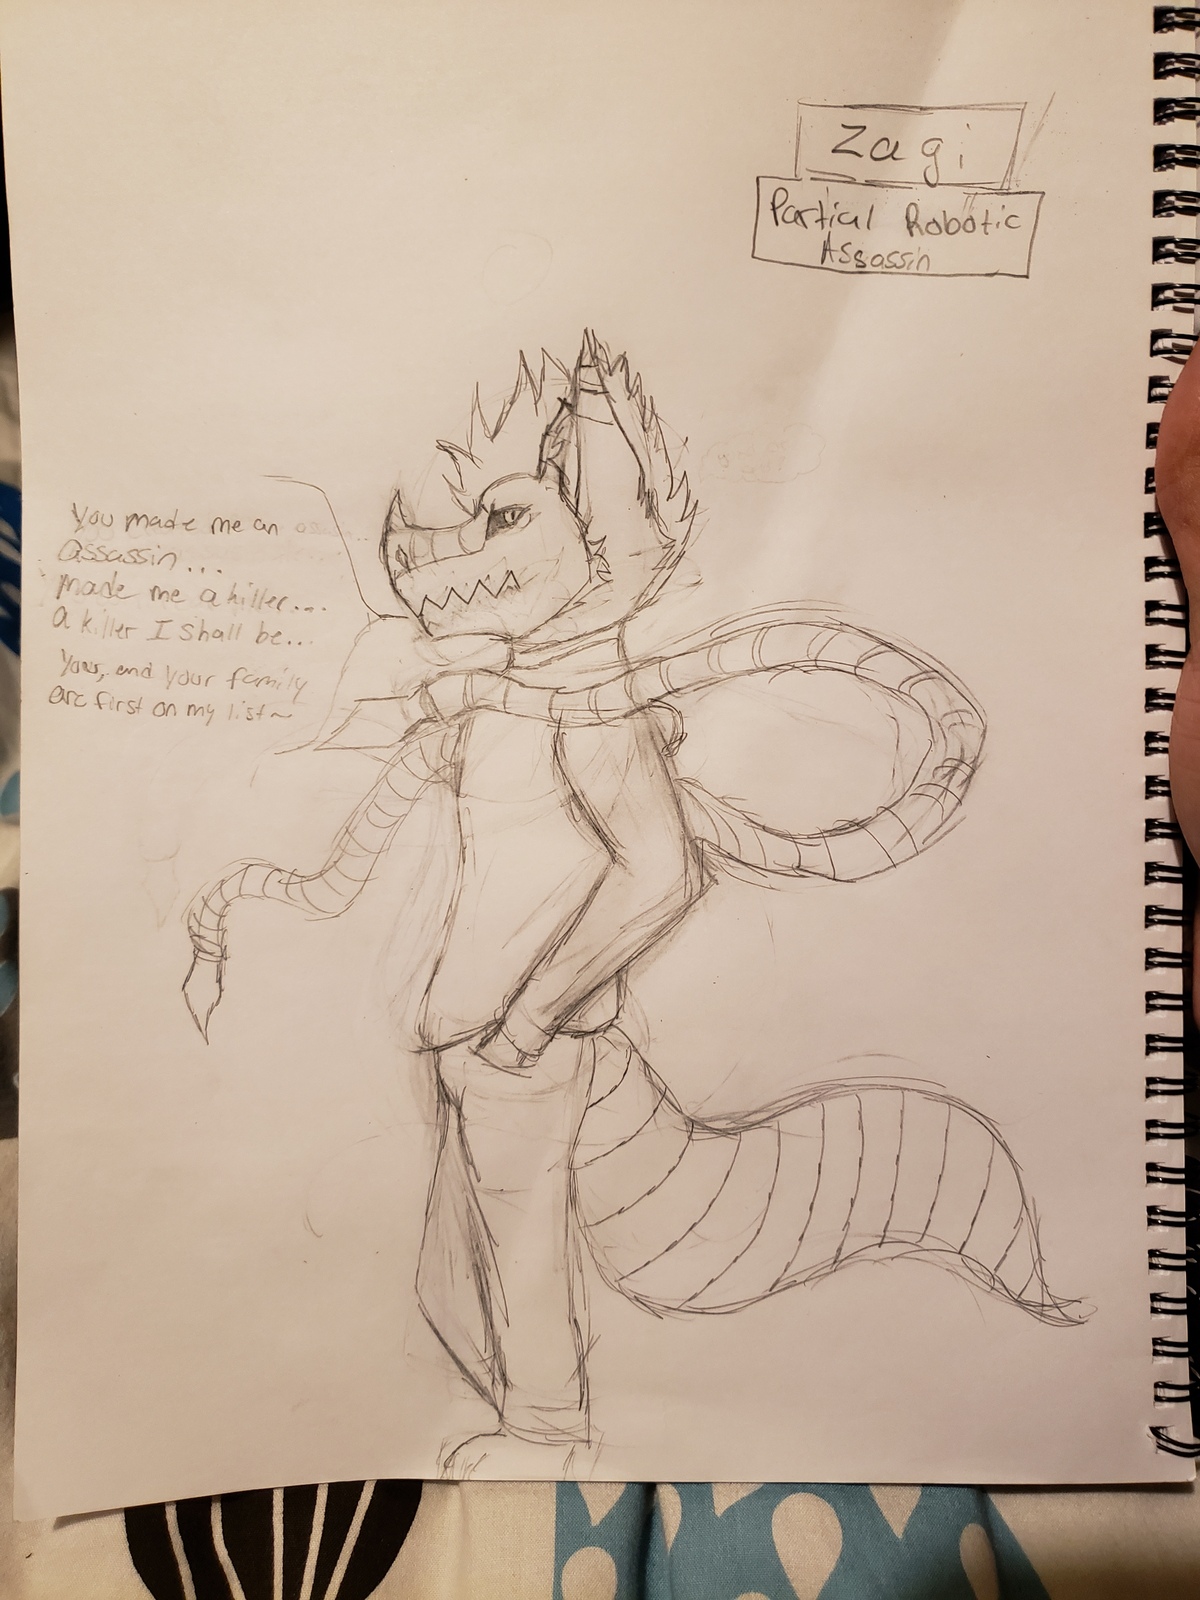 Zagi
Partial Robotic
Assassin
You made me an
assassin...
made me a killer...
a killer I shall be...
and your family
are first on my list~